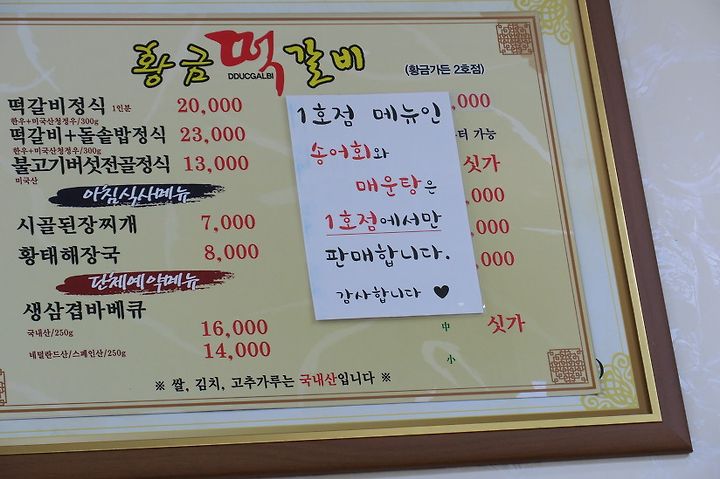 황금떡갈비
DDUCGALBI
(황금가든 2호점)
떡갈비정식 1인분 20,000
한우+미국산청정우/300g
떡갈비+돌솥밥정식 23,000
한우+미국산청정우/300g
불고기버섯전골정식 13,000
미국산
아침식사메뉴
시골된장찌개 7,000
황태해장국 8,000
단체예약메뉴
생삼겹바베큐
국내산/250g 16,000
네덜란드산/스페인산/250g 14,000
※ 쌀, 김치, 고추가루는 국내산입니다 ※
1호점 메뉴인
송어회와
매운탕은
1호점에서만
판매합니다.
감사합니다 ♥
,000
터 가능
싯가
,000
,000
,000
中 싯가
小